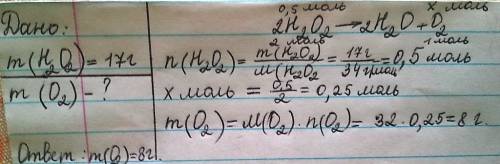 Дано:
0,5 моль x моль
2H₂O₂ → 2H₂O + O₂
2 моль 1 моль
m(H₂O₂) = 17г
n(H₂O₂) = m(H₂O₂)/M(H₂O₂ = 17г/34г/моль = 0,5 моль
m(O₂) – ?
x моль = 0,5/2 = 0,25 моль
m(O₂) = M(O₂) · n(O₂) = 32 · 0,25 = 8 г.
Ответ: m(O₂) = 8г.